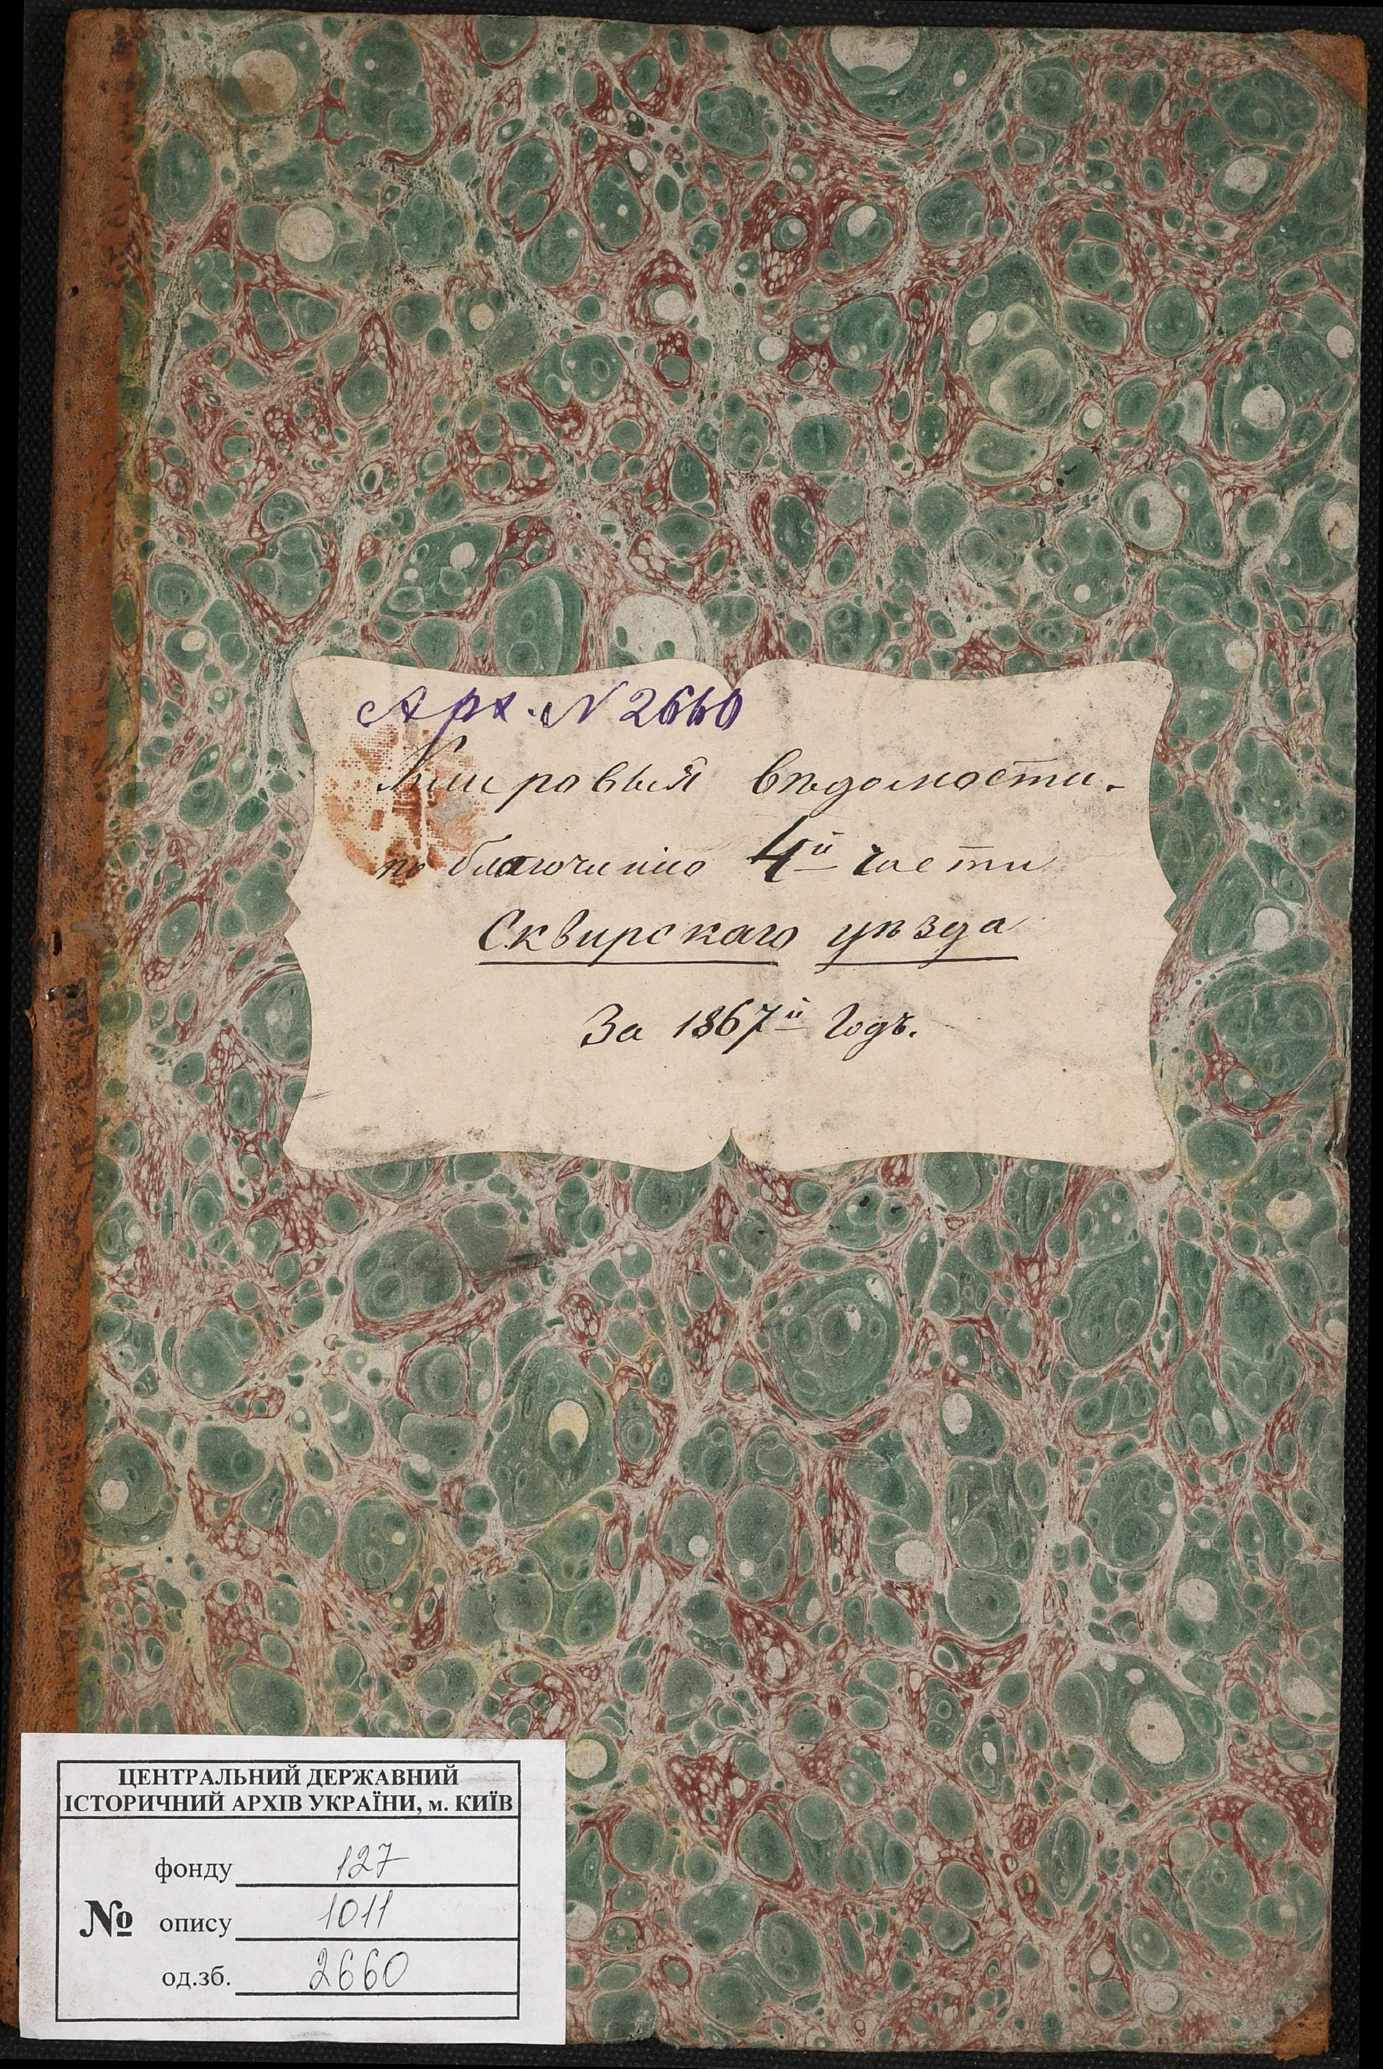 Арх. N 2660
Клировыя вѣдомости.
по благочинію 4й части
Сквирскаго уѣзда
За 1867й Годъ.
ЦЕНТРАЛЬНИЙ ДЕРЖАВНИЙ
ІСТОРИЧНИЙ АРХІВ УКРАЇНИ, м. КИЇВ
фонду 127
№ опису 1011
од.зб. 2660